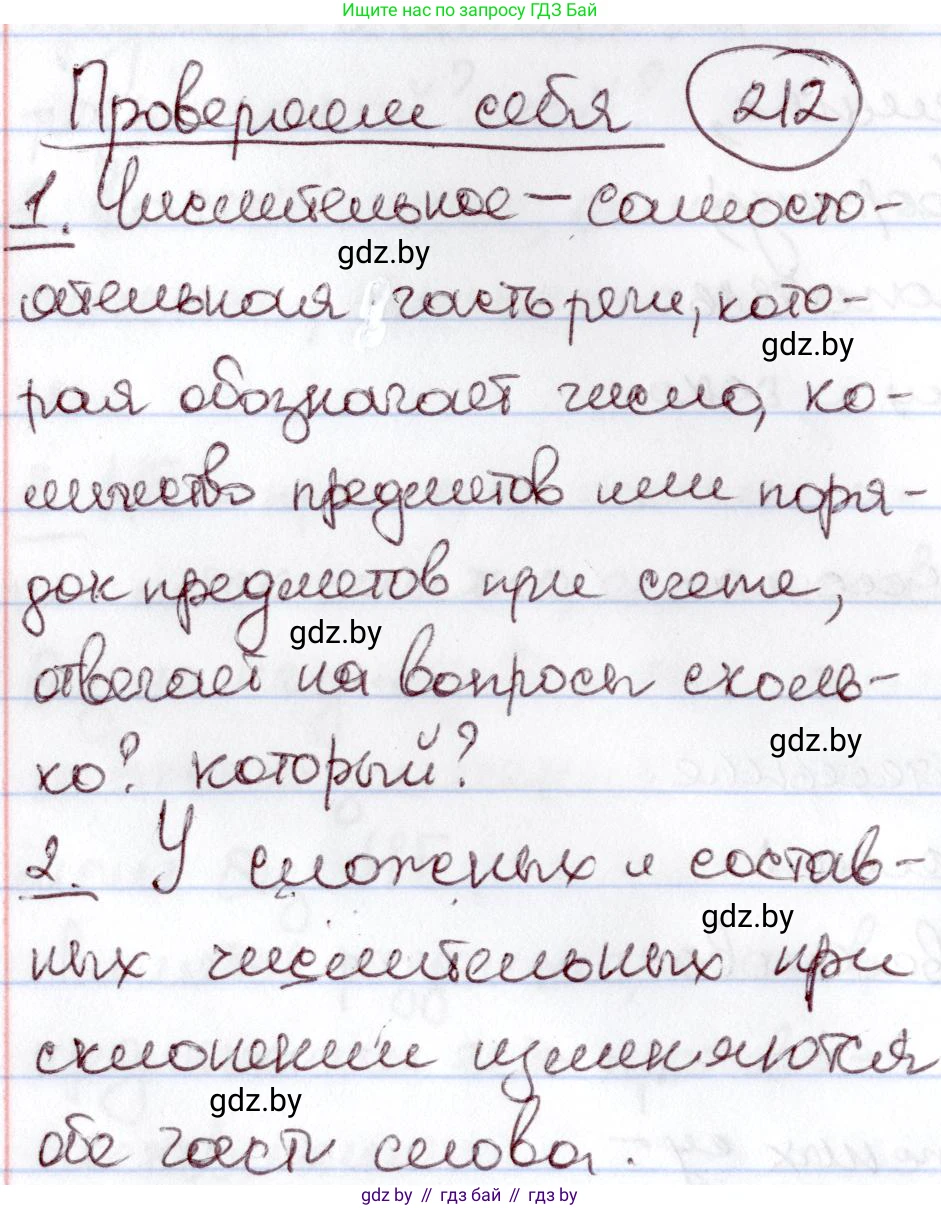 Ищите нас по запросу ГДЗ Бай
Проверяем себя 212
1. Числительное – самосто-
gdz.by
ятельная часть речи, кото-
gdz.by
рая обозначает число, ко-
личество предметов или поря-
док предметов при счете,
gdz.by
отвечает на вопросы сколь-
gdz.by
ко? который?
2. У сложных и состав-
gdz.by
ных числительных при
склонении изменяются
gdz.by
обе части слова.
gdz.by // гдз бай // гдз by